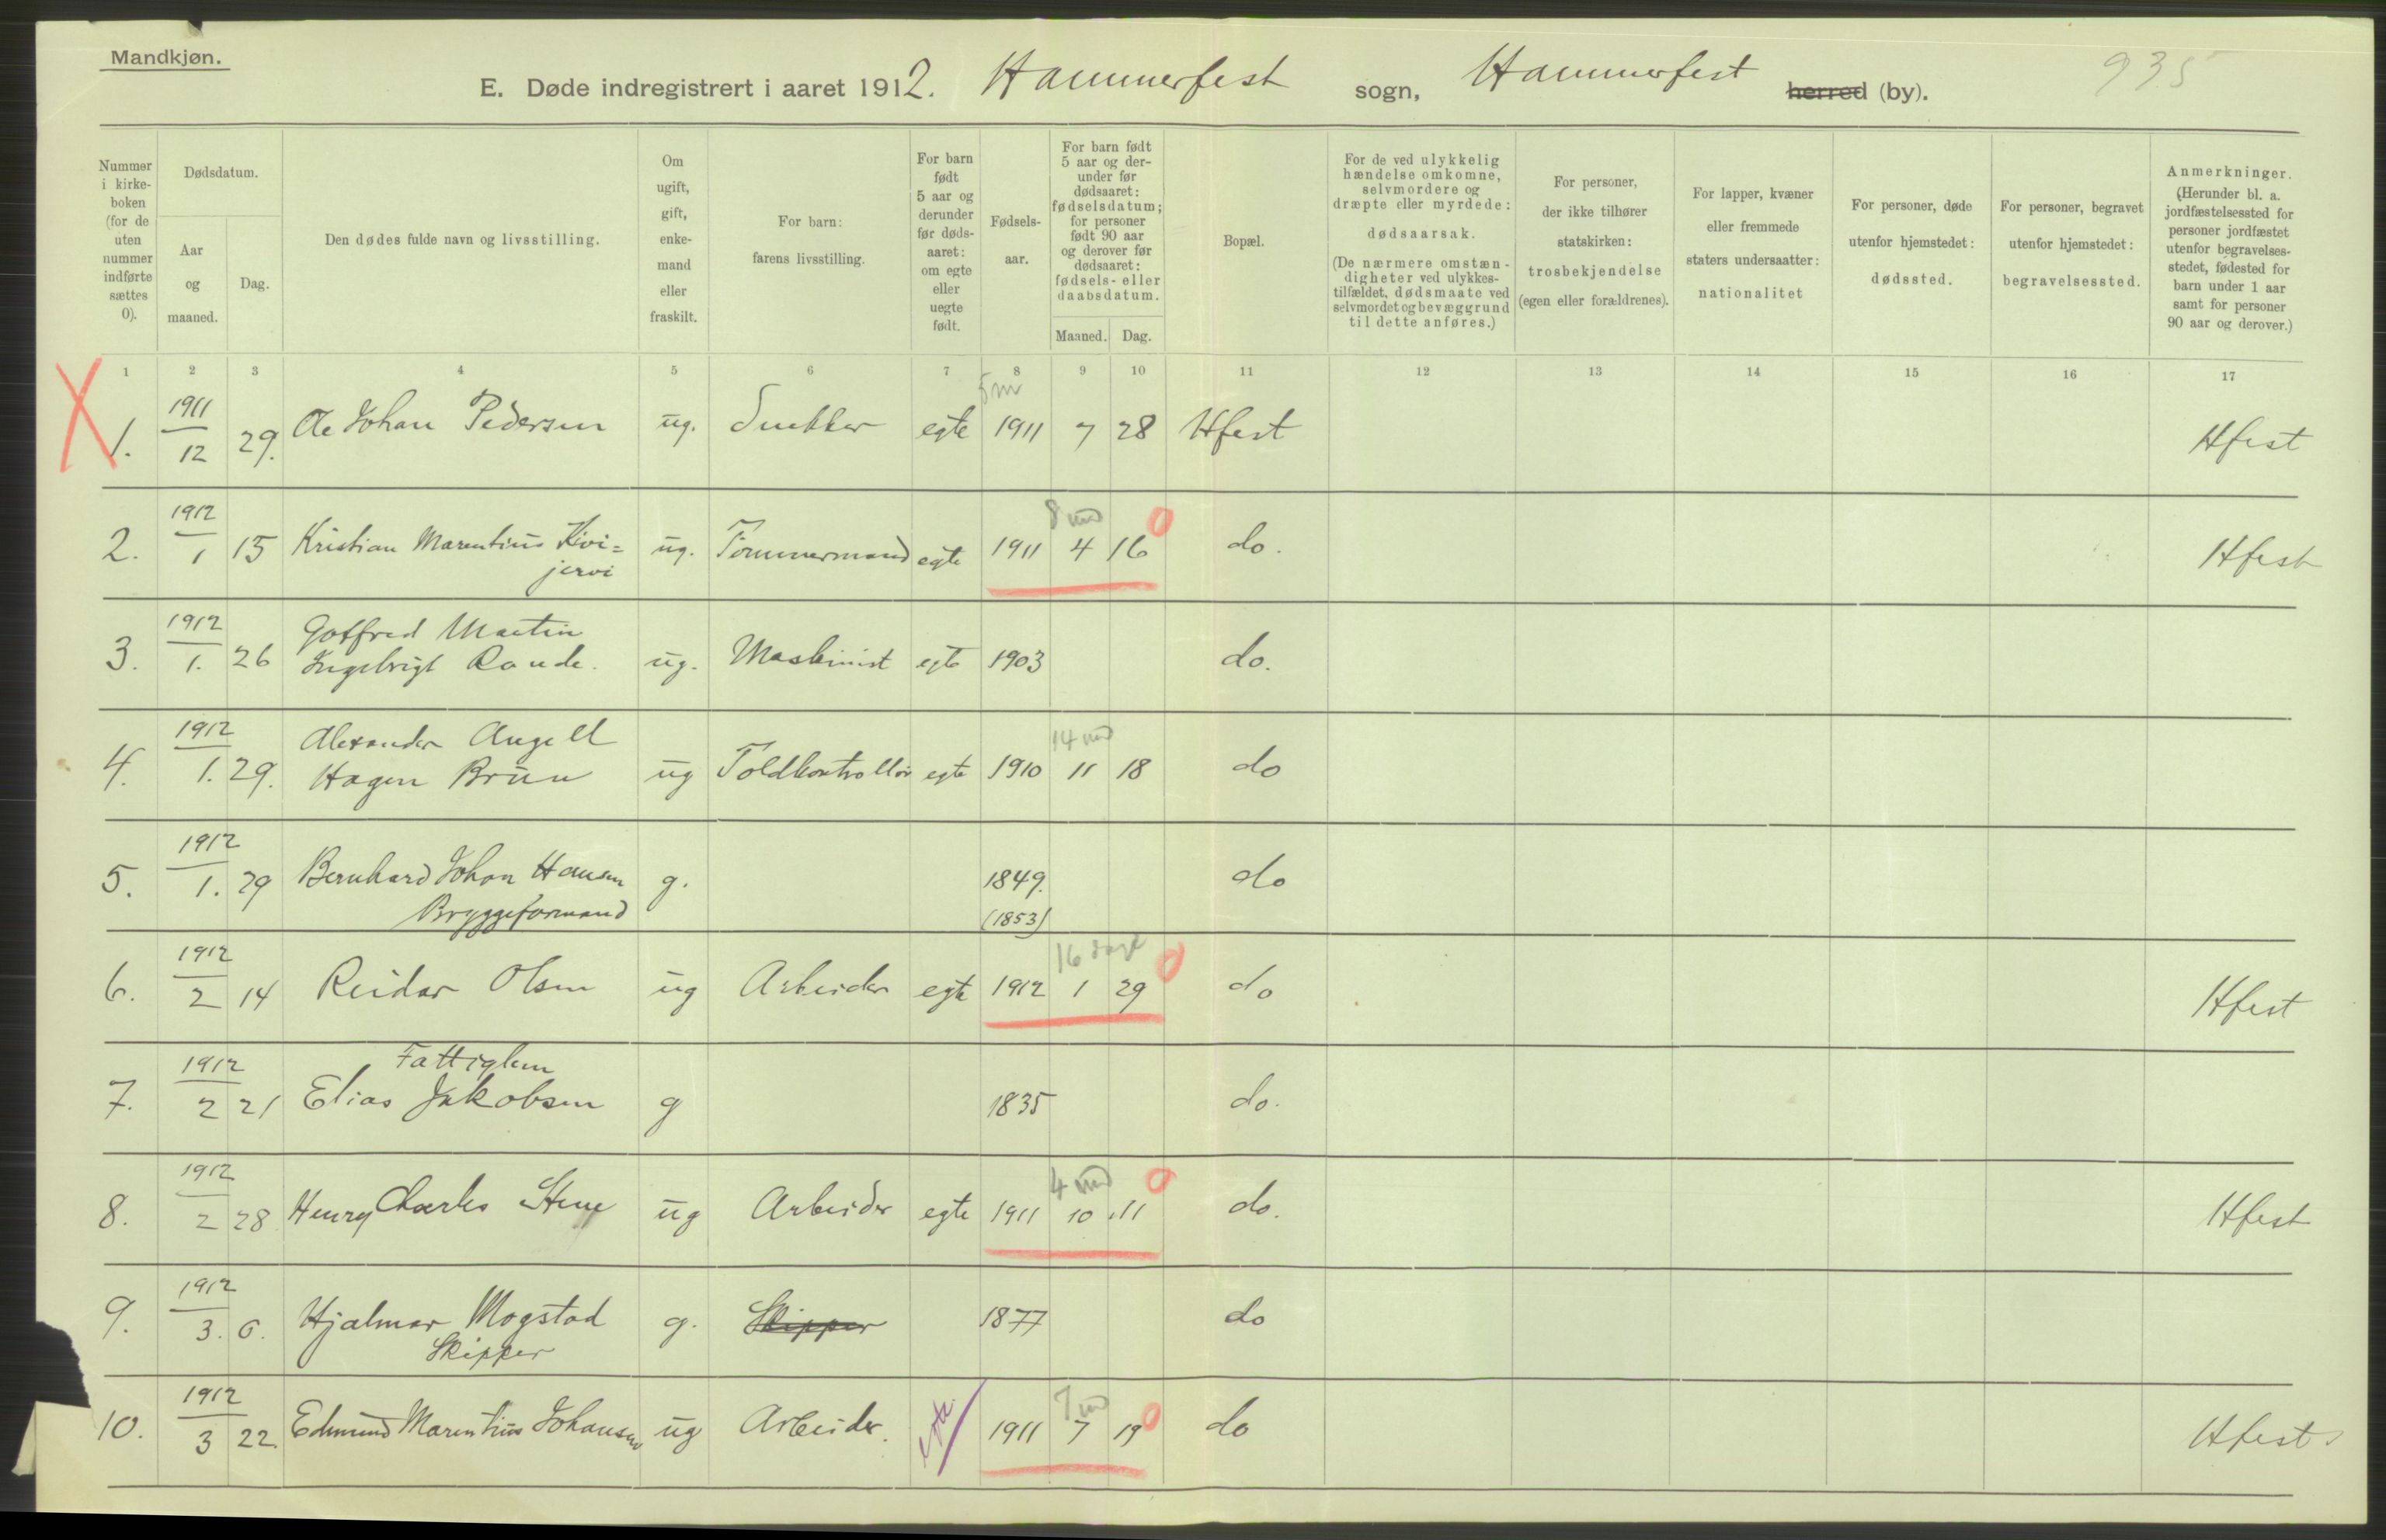 Mandkjøn.
E. Døde indregistrert i aaret 1912. Hammerfest sogn, Hammerfest herred (by). 935
Nummer i kirke- boken (for de uten nummer indførte sættes 0).
Dødsdatum.
Aar og maaned.
Dag.
Den dødes fulde navn og livsstilling.
Om ugift, gift, enke- mand eller fraskilt.
For barn: farens livsstilling.
For barn født 5 aar og derunder før døds- aaret: om egte eller uegte født.
Fødsels- aar.
For barn født 5 aar og der- under før dødsaaret: fødselsdatum; for personer født 90 aar og derover før dødsaaret: fødsels- eller daabsdatum.
Maaned. Dag.
Bopæl.
For de ved ulykkelig hændelse omkomne, selvmordere og dræpte eller myrdede: dødsaarsak. (De nærmere omstæn- digheter ved ulykkes- tilfældet, dødsmaate ved selvmordet og bevæggrund til dette anføres.)
For personer, der ikke tilhører statskirken: trosbekjendelse (egen eller forældrenes).
For lapper, kvæner eller fremmede staters undersaatter: nationalitet
For personer, døde utenfor hjemstedet: dødssted.
For personer, begravet utenfor hjemstedet: begravelsessted.
Anmerkninger. (Herunder bl. a. jordfæstelsessted for personer jordfæstet utenfor begravelses- stedet, fødested for barn under 1 aar samt for personer 90 aar og derover.)
1 2 3 4 5 6 7 8 9 10 11 12 13 14 15 16 17
5 m
X 1. 1911 12 29. Ole Johan Pedersen ug. Snekker egte 1911 7 28 Hfest Hfest
8 md 0
2. 1912 1 15 Kristian Marentius Kivi= ug. Tømmermand egte 1911 4 16 do. Hfest
jervi
3. 1912 1. 26 Gotfred Martin
Ingebrigt Rande. ug. Maskinist egte 1903 do.
14 md
4. 1912 1. 29. Alexander Angell
Hagen Brun ug Toldkontrollør egte 1910 11 18 do
5. 1912 1. 29 Bernhard Johan Hansen g. 1849. do
Bryggeformand (1853)
16 dage 0
6. 1912 2 14 Reidar Olsen ug Arbeider egte 1912 1 29 do Hfest
Fattiglem
7. 1912 2 21 Elias Jakobsen g 1835 do.
4 md 0
8. 1912 2 28 Henry Charles ug Arbeider egte 1911 10 11 do. Hfest
9. 1912 3. 6. Hjalmar Mogstad g. Skipper 1877 do
Skipper
7 md 0
10. 1912 3 22. Edmund Marentius Johansen ug Arbeider. egte 1911 7 19 do Hfest.